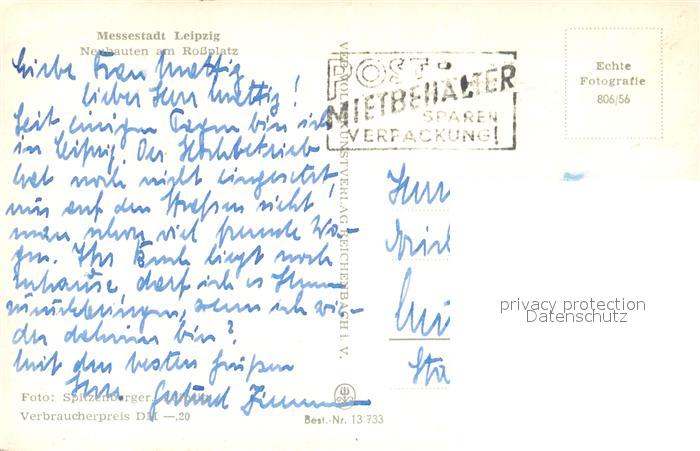 Messestadt Leipzig
Neubauten am Roßplatz
Liebe Frau Mattig,
lieber Herr Mattig!
Seit einigen Tagen bin ich
in Leipzig. Der Hochbetrieb
hat noch nicht eingesetzt,
nur auf den Straßen sieht
man schon viel fremde Wa-
gen. Ihr Buch liegt noch
zuhause darf ich es Ihnen
zurückbringen, wenn ich wie-
der daheim bin?
Mit den besten Grüßen
Ihre Gertrud
Foto: Spitzenberger,
Verbraucherpreis DM —,20
VEB VOLKSKUNSTVERLAG REICHENBACH i. V.
Best.-Nr. 13 733
POST-
MIETBEHÄLTER
SPAREN
VERPACKUNG!
Echte
Fotografie
806/56
Herr
privacy protection
Datenschutz